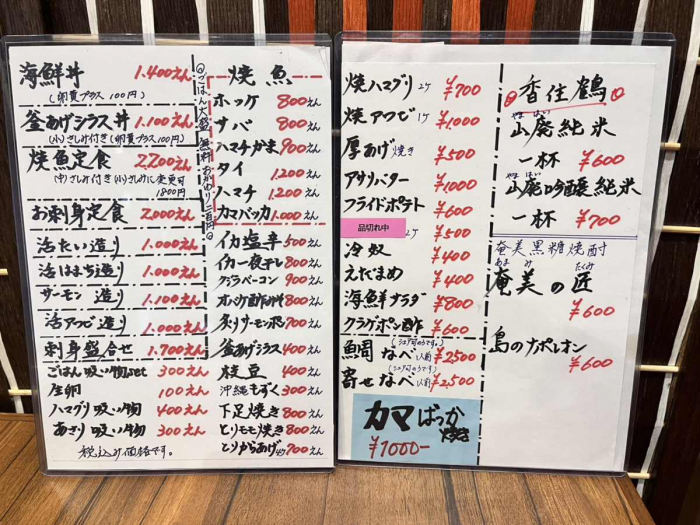 海鮮丼 1.400えん
(卵黄プラス100円)
釜あげシラス丼 1.100えん
(小)さしみ付き(卵黄プラス100円)
焼魚定食 2,200えん
(中)さしみ付き(小)さしみに変更可
1800円
お刺身定食 2,000えん
活たい造り 1.000えん
活はまち造り 1.000えん
サーモン造り 1.100えん
活アワビ造り 1.000えん
刺身盛合せ 1.700えん
ごはん吸い物set 300えん
生卵 100えん
ハマグリ吸い物 400えん
あさり吸い物 300えん
税込み価格です。
ごはん大盛 無料 おかわり二百円
焼魚
ホッケ 800えん
サバ 800えん
ハマチかま 900えん
タイ 1.200えん
ハマチ 1.200えん
カマバッカ 1.000えん
イカ塩辛 500えん
イカ一夜干し 800えん
クジラベーコン 900えん
オバケ酢みそ 800えん
炙りサーモンポン 700えん
釜あげシラス 400えん
枝豆 400えん
沖縄もずく 300えん
下足焼き 800えん
とりモモ焼き 800えん
とりからあげ 700えん
焼ハマグリ 2ケ ¥700
焼アワビ 1ケ ¥1,000
厚あげ焼き ¥500
アサリバター ¥1000
フライドポテト ¥600
品切れ中 2ケ ¥500
冷奴 ¥400
えだまめ ¥400
海鮮サラダ ¥800
クラゲポン酢 ¥600
魚周なべ 1人前 ¥2500
寄せなべ 1人前 ¥2,500
カマばっか焼き
¥1000-
香住鶴
山廃純米
一杯 ¥600
山廃吟醸純米
一杯 ¥700
奄美黒糖焼酎
あまみ たくみ
奄美の匠
¥600
島のナポレオン
¥600